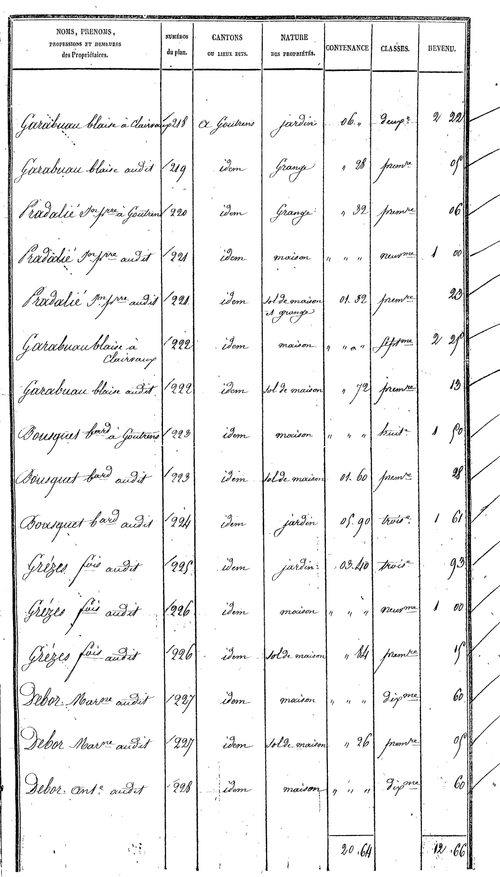 NOMS, PRENOMS, PROFESSIONS ET DEMEURES des Propriétaires. NUMÉROS du plan. CANTONS OU LIEUX DITS. NATURE DES PROPRIÉTÉS. CONTENANCE CLASSES. REVENU.
Garabuau blaise à Clairvaux 1218 a Goutrens jardin 06 " deuxe 2 22
Garabuau blaise audit 1219 idem Grange " 28 premre 05
Pradalié Jn pre à Goutrens 1220 idem Grange " 32 premre 06
Pradalié Jn pre audit 1221 idem maison " " " neuvme 1 00
Pradalié Jn pre audit 1221 idem sol de maison et grange 01.82 premre 23
Garabuau blaise à Clairvaux 1222 idem maison " " " sepme 2 25
Garabuau blaise audit 1222 idem sol de maison " 72 premre 13
Bousquet bard à Goutrens 1223 idem maison " " " huite 1 50
Bousquet bard audit 1223 idem sol de maison 01.60 premre 28
Bousquet bard audit 1224 idem jardin 05.90 troise 1 61
Grézes fois audit 1225 idem jardin 03.40 troise 93
Grézes fois audit 1226 idem maison " " " neuvme 1 00
Grézes fois audit 1226 idem sol de maison " 84 premre 15
Debor Marne audit 1227 idem maison " " " dixme 60
Debor Marne audit 1227 idem sol de maison " 26 premre 05
Debor ante audit 1228 idem maison " " " dixme 60
20.64 12.66